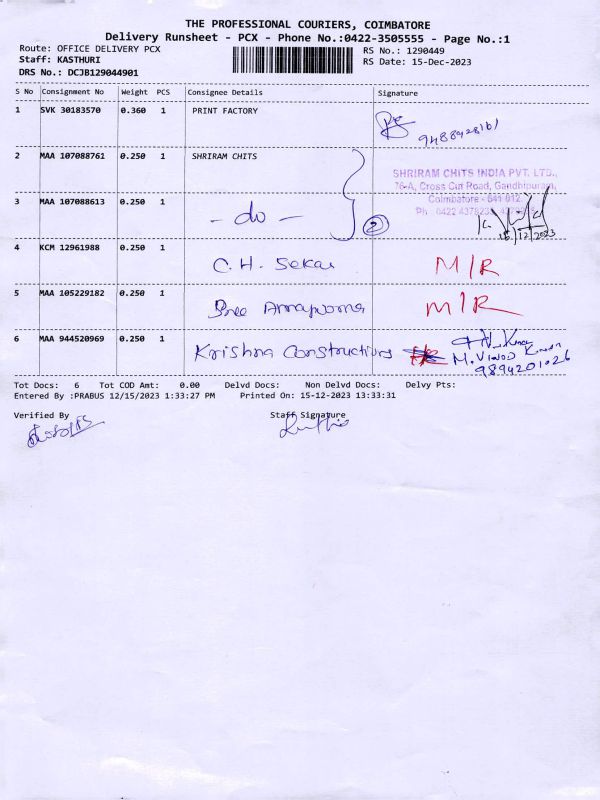 THE PROFESSIONAL COURIERS, COIMBATORE
Delivery Runsheet - PCX - Phone No.:0422-3505555 - Page No.:1
Route: OFFICE DELIVERY PCX RS No.: 1290449
Staff: KASTHURI RS Date: 15-Dec-2023
DRS No.: DCJB129044901
S No Consignment No Weight PCS Consignee Details Signature
1 SVK 30183570 0.360 1 PRINT FACTORY
9488928161
2 MAA 107088761 0.250 1 SHRIRAM CHITS
SHRIRAM CHITS INDIA PVT. LTD.,
76-A, Cross Cut Road, Gandhipuram,
3 MAA 107088613 0.250 1 Coimbatore - 641 012.
- do - 2 Ph : 0422
15/12/2023
4 KCM 12961988 0.250 1
C.H. Sekar M/R
5 MAA 105229182 0.250 1
Sree Annapoorna M/R
6 MAA 944520969 0.250 1
Krishna Constructions M. Vinod Kumar
9894201026
Tot Docs: 6 Tot COD Amt: 0.00 Delvd Docs: Non Delvd Docs: Delvy Pts:
Entered By :PRABUS 12/15/2023 1:33:27 PM Printed On: 15-12-2023 13:33:31
Verified By Staff Signature